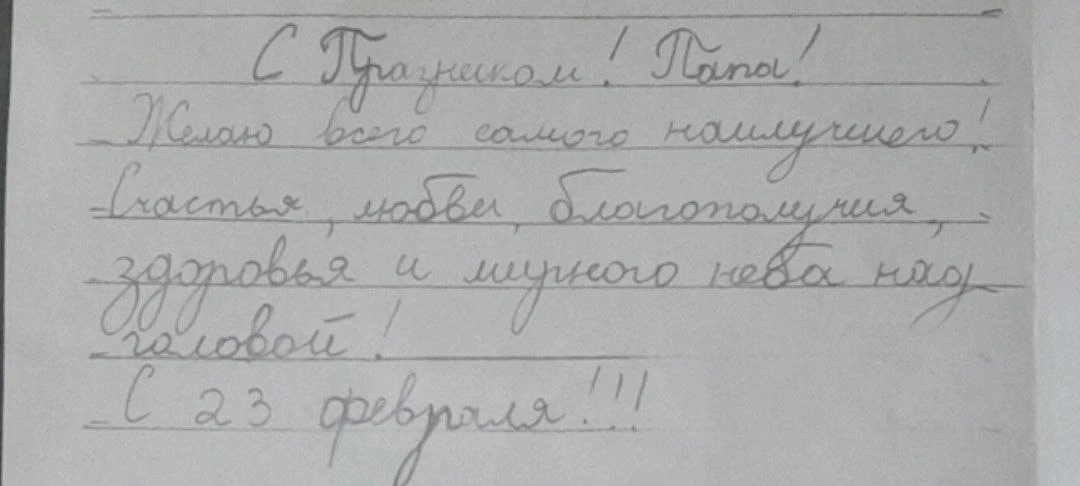 С Празнеком! Папа!
Желаю всего самого наилучшего!
Счастья, любви, благополучия,
здоровья и мирного неба над
головой!
С 23 февраля!!!